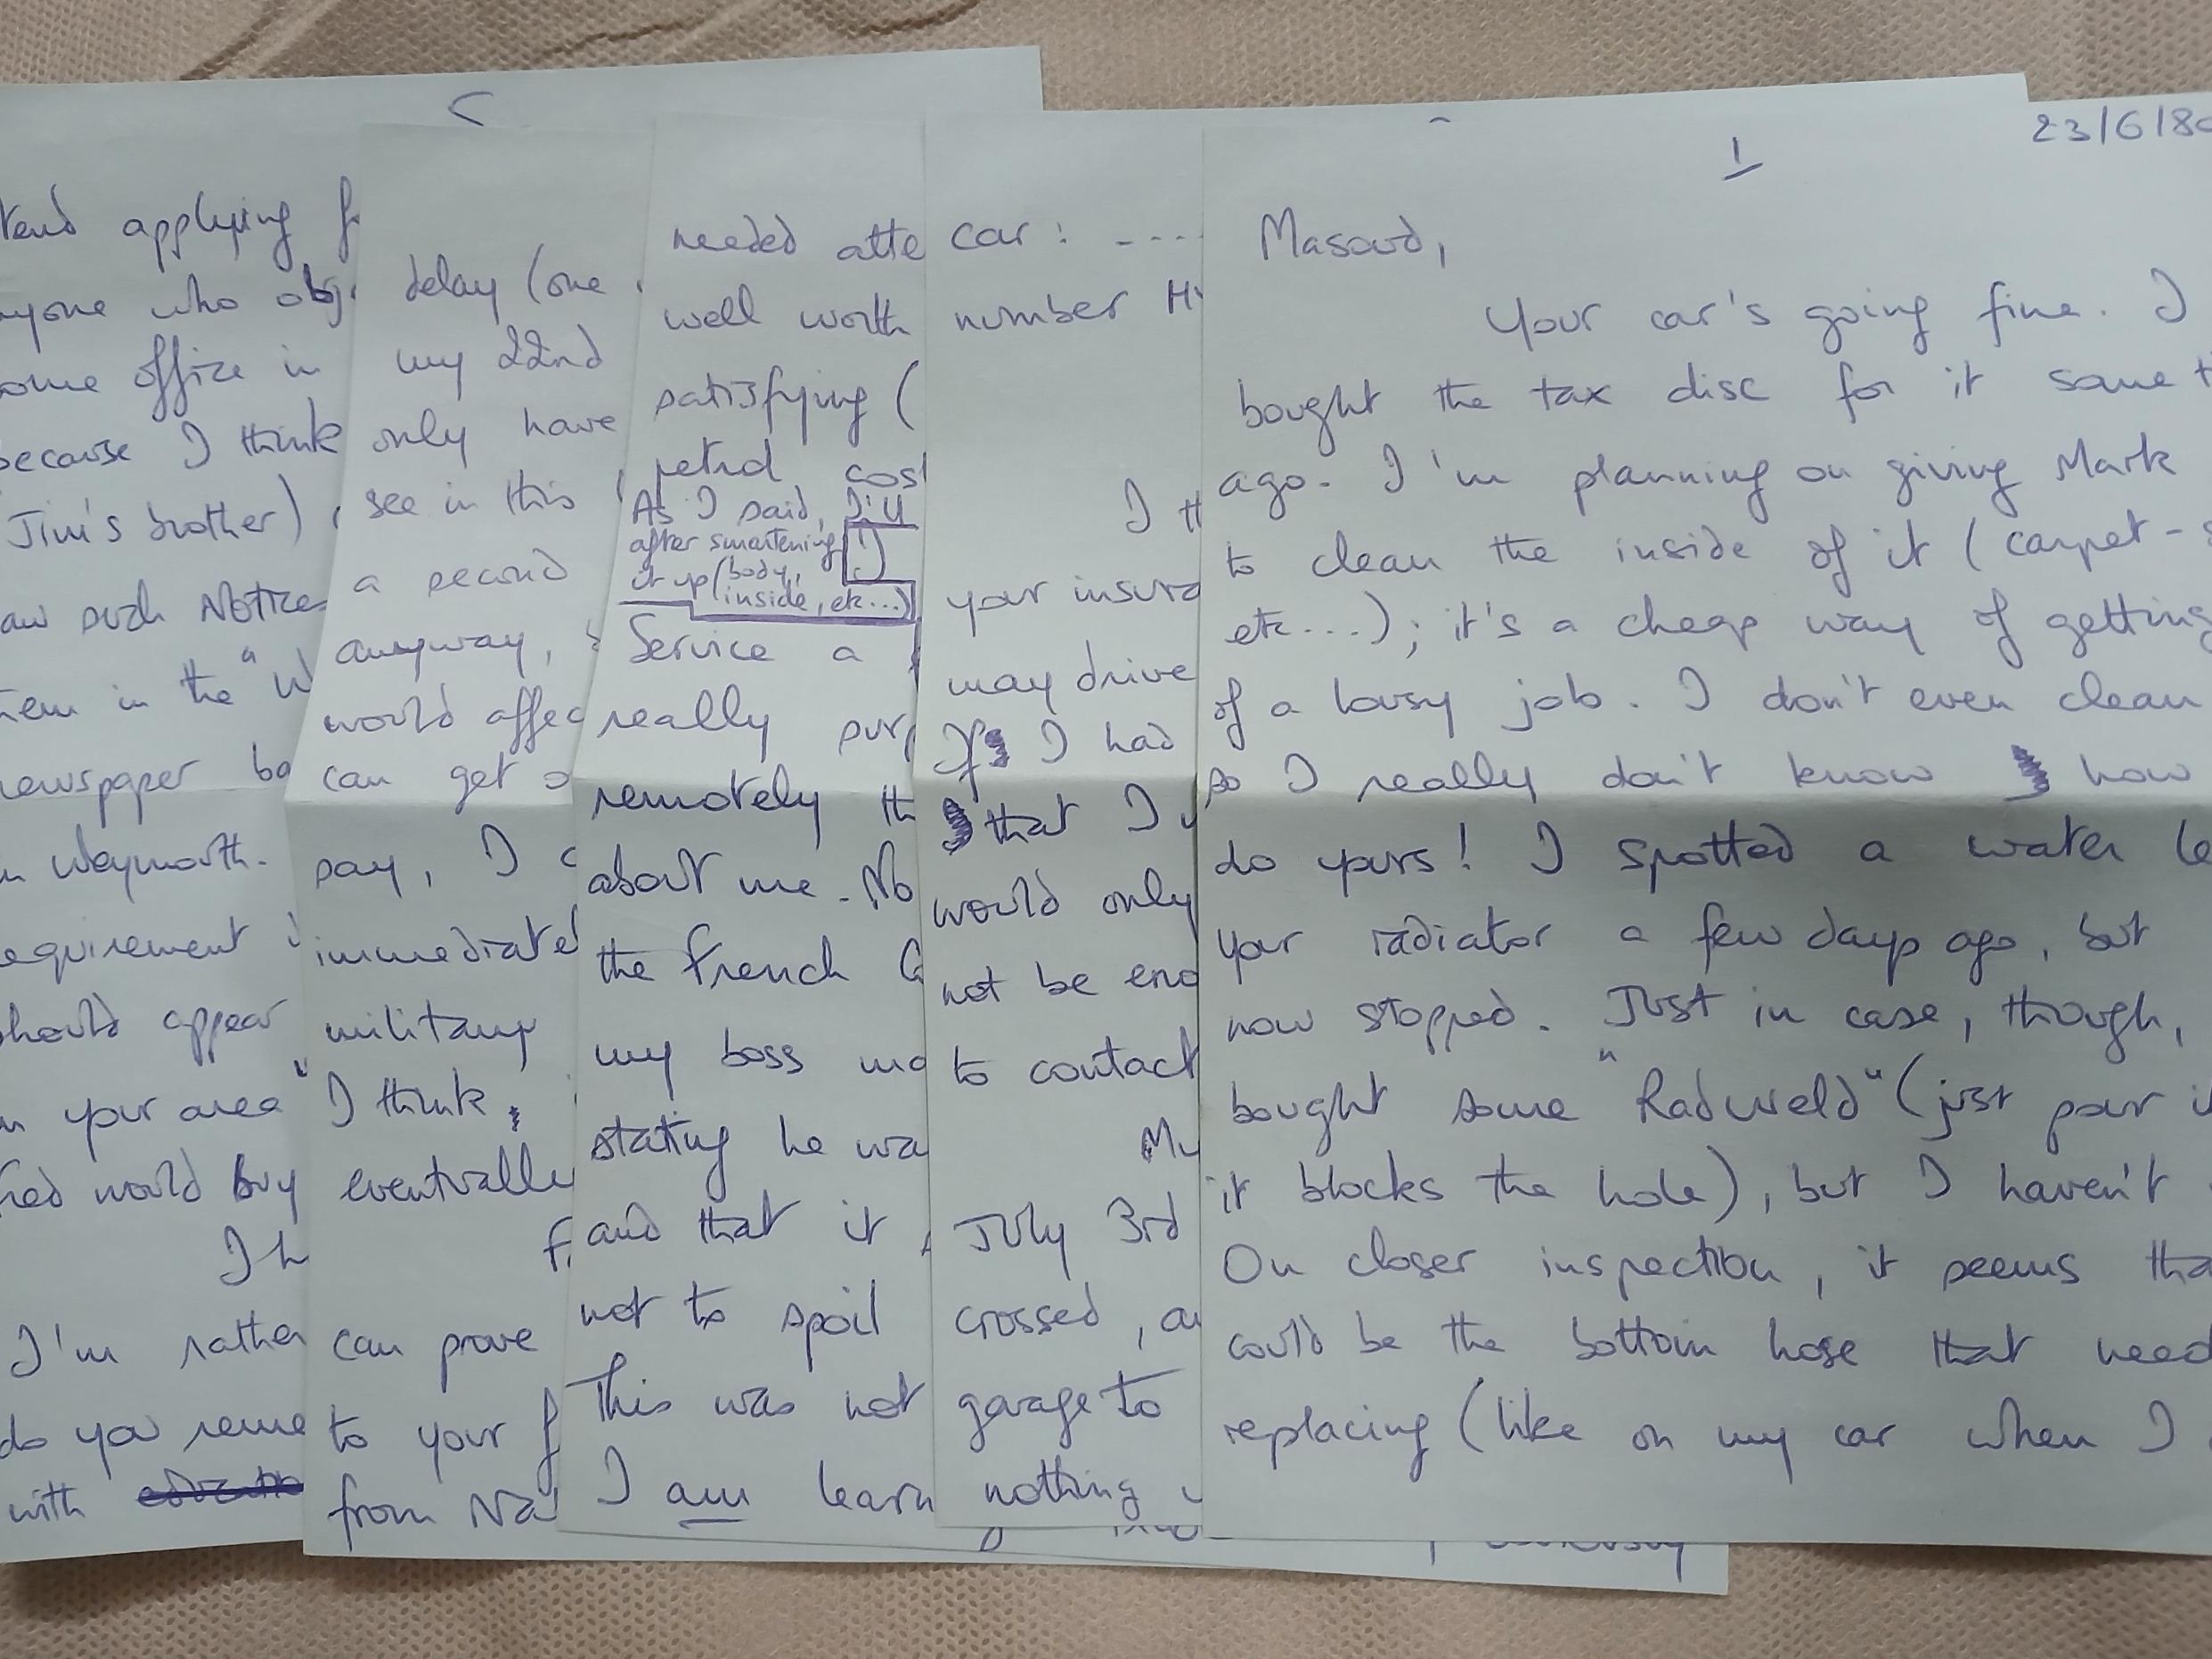 1
23/6/8
Masoud,
Your car's going fine. I
bought the tax disc for it some t
ago. I'm planning on giving Mark
to clean the inside of it (carpet-s
etc...); it's a cheap way of getting
of a lousy job. I don't even clean
so I really don't know how
do yours! I spotted a water le
your radiator a few days ago, but
now stopped. Just in case, though,
bought some "Radweld" (just pour i
it blocks the hole), but I haven't
On closer inspection, it seems tha
could be the bottom hose that need
replacing (like on my car when I
car: ----
number H
I th
your insura
may drive
If I had
that I w
would only
not be eno
to contact
My
July 3rd
crossed, an
garage to
nothing
needed atte
well worth
satisfying (
petrol cost
As I said, I'll
after smartening (!)
it up (body,
inside, etc...)
Service a
really surp
remotely th
about me. No
the French C
my boss ma
stating he wa
and that it
not to spoil
This was not
I am learn
delay (one
my 22nd
only have
see in this
a second
anyway,
would affec
can get a
say, I c
immediatel
military
I think,
eventually
F
can prove
to your f
from Na
tend applying f
nyone who obj
ome office in
because I think
Jim's brother)
aw such Notices
hem in the "W
newspaper ba
n Weymouth.
equirement
should appear
n your area"
ried would buy
I h
I'm rather
do you reme
with